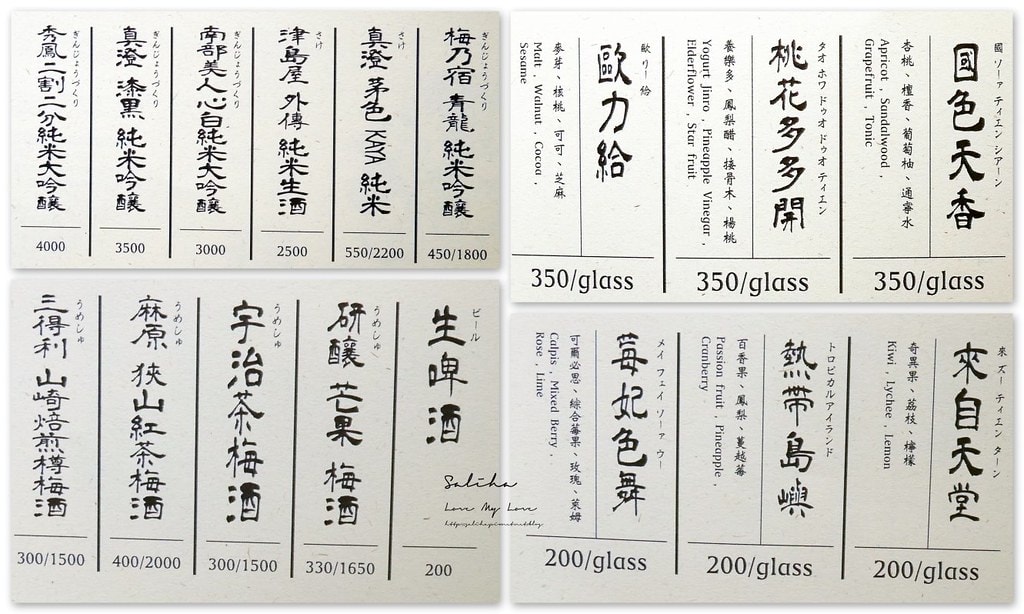 ぎんじょうづくり
梅乃宿 青龍 純米吟釀
450/1800
さけ
真澄 茅色 KAYA 純米
550/2200
さけ
津島屋 外傳 純米生酒
2500
ぎんじょうづくり
南部美人心白純米大吟釀
3000
ぎんじょうづくり
真澄 漆黑 純米吟釀
3500
ぎんじょうづくり
秀鳳二割二分純米大吟釀
4000
國 ソーァ ティエン シアーン
國色天香
杏桃、檀香、葡萄柚、通寧水
Apricot , Sandalwood ,
Grapefruit , Tonic
350/glass
タオ ホワ ドゥオ ドゥオ ティエン
桃花多多開
養樂多、鳳梨醋、接骨木、楊桃
Yogurt Jinro , Pineapple Vinegar ,
Elderflower , Star fruit
350/glass
歐 リー 給
歐力給
麥芽、核桃、可可、芝麻
Malt , Walnut , Cocoa ,
Sesame
350/glass
ビール
生啤酒
200
うめしゅ
研釀 芒果 梅酒
330/1650
うめしゅ
宇治茶梅酒
300/1500
うめしゅ
麻原 狹山紅茶梅酒
400/2000
うめしゅ
三得利 山崎焙煎樽梅酒
300/1500
Saliha
Love My Love
來 ズー ティエン ターン
來自天堂
奇異果、荔枝、檸檬
Kiwi , Lychee , Lemon
200/glass
トロピカルアイランド
熱帶島嶼
百香果、鳳梨、蔓越莓
Passion fruit , Pineapple ,
Cranberry
200/glass
メイ フェイ ソーァ ウー
莓妃色舞
可爾必思、綜合莓果、玫瑰、萊姆
Calpis , Mixed Berry ,
Rose , Lime
200/glass